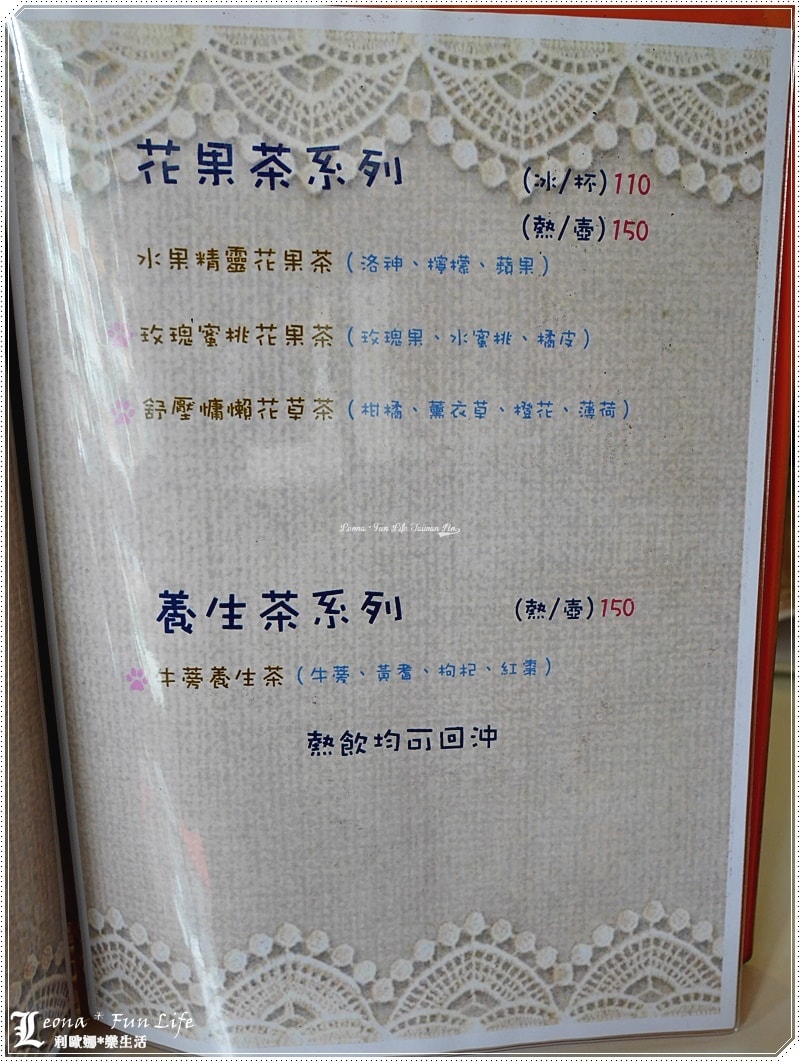 花果茶系列
(冰/杯)110
(熱/壺)150
水果精靈花果茶(洛神、檸檬、蘋果)
玫瑰蜜桃花果茶(玫瑰果、水蜜桃、橘皮)
舒壓慵懶花草茶(柑橘、薰衣草、橙花、薄荷)
Leona*Fun Life Taiwan Pin
養生茶系列 (熱/壺)150
牛蒡養生茶(牛蒡、黃耆、枸杞、紅棗)
熱飲均可回沖
Leona * Fun Life
利歐娜*樂生活